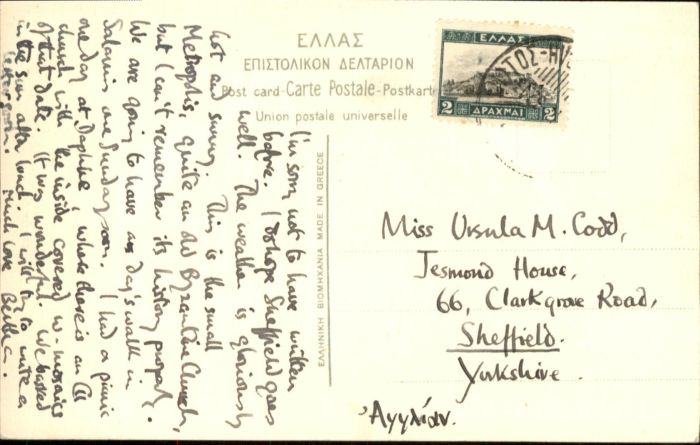 ΕΛΛΑΣ
ΕΠΙΣΤΟΛΙΚΟΝ ΔΕΛΤΑΡΙΟΝ
Post card-Carte Postale-Postkarte
Union postale universelle
ΕΛΛΑΣ
2 ΔΡΑΧΜΑΙ 2
I'm sorry not to have written
before. I do hope Sheffield goes
well. The weather is gloriously
hot and sunny. This is the small
Metropolis, quite an old Byzantine Church,
but I can't remember its history properly.
We are going to have a day's walk in
Salamis one Sunday soon. I had a picnic
one day at Daphne, where there is an
church with the inside covered w. mosaics
of that date. It was wonderful. We basked
in the sun after lunch. I will try to write a
letter soon. Much love
ΕΛΛΗΝΙΚΗ ΒΙΟΜΗΧΑΝΙΑ MADE IN GREECE
Miss Ursula M. Codd,
Jesmond House,
66, Clarkgrove Road,
Sheffield.
Yorkshire.
Ἀγγλίαν.